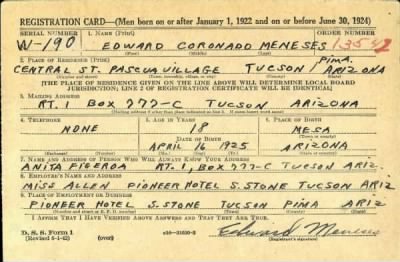 REGISTRATION CARD—(Men born on or after January 1, 1922 and on or before June 30, 1924)
SERIAL NUMBER 1. NAME (Print) ORDER NUMBER
W-190 EDWARD CORONADO MENESES 13542
2. PLACE OF RESIDENCE (Print) PIMA
CENTRAL ST. PASCUA VILLAGE TUCSON ARIZONA
(Number and street) (Town, township, village, or city) (County) (State)
[THE PLACE OF RESIDENCE GIVEN ON THE LINE ABOVE WILL DETERMINE LOCAL BOARD
JURISDICTION; LINE 2 OF REGISTRATION CERTIFICATE WILL BE IDENTICAL]
3. MAILING ADDRESS
RT. 1 BOX 777-C TUCSON ARIZONA
4. TELEPHONE 5. AGE IN YEARS 6. PLACE OF BIRTH
NONE 18 MESA
DATE OF BIRTH
APRIL 16 1925 ARIZONA
7. NAME AND ADDRESS OF PERSON WHO WILL ALWAYS KNOW YOUR ADDRESS
ANITA FIGEROA RT. 1, BOX 777-C TUCSON ARIZ.
8. EMPLOYER'S NAME AND ADDRESS
MISS ALLEN PIONEER HOTEL S. STONE TUCSON ARIZ
9. PLACE OF EMPLOYMENT OR BUSINESS
PIONEER HOTEL S. STONE TUCSON PIMA ARIZ
(Number and street or R. F. D. number) (Town) (County) (State)
I AFFIRM THAT I HAVE VERIFIED ABOVE ANSWERS AND THAT THEY ARE TRUE.
D. S. S. Form 1
(Revised 6-1-42) (over) Edward Meneses
(Registrant's signature)